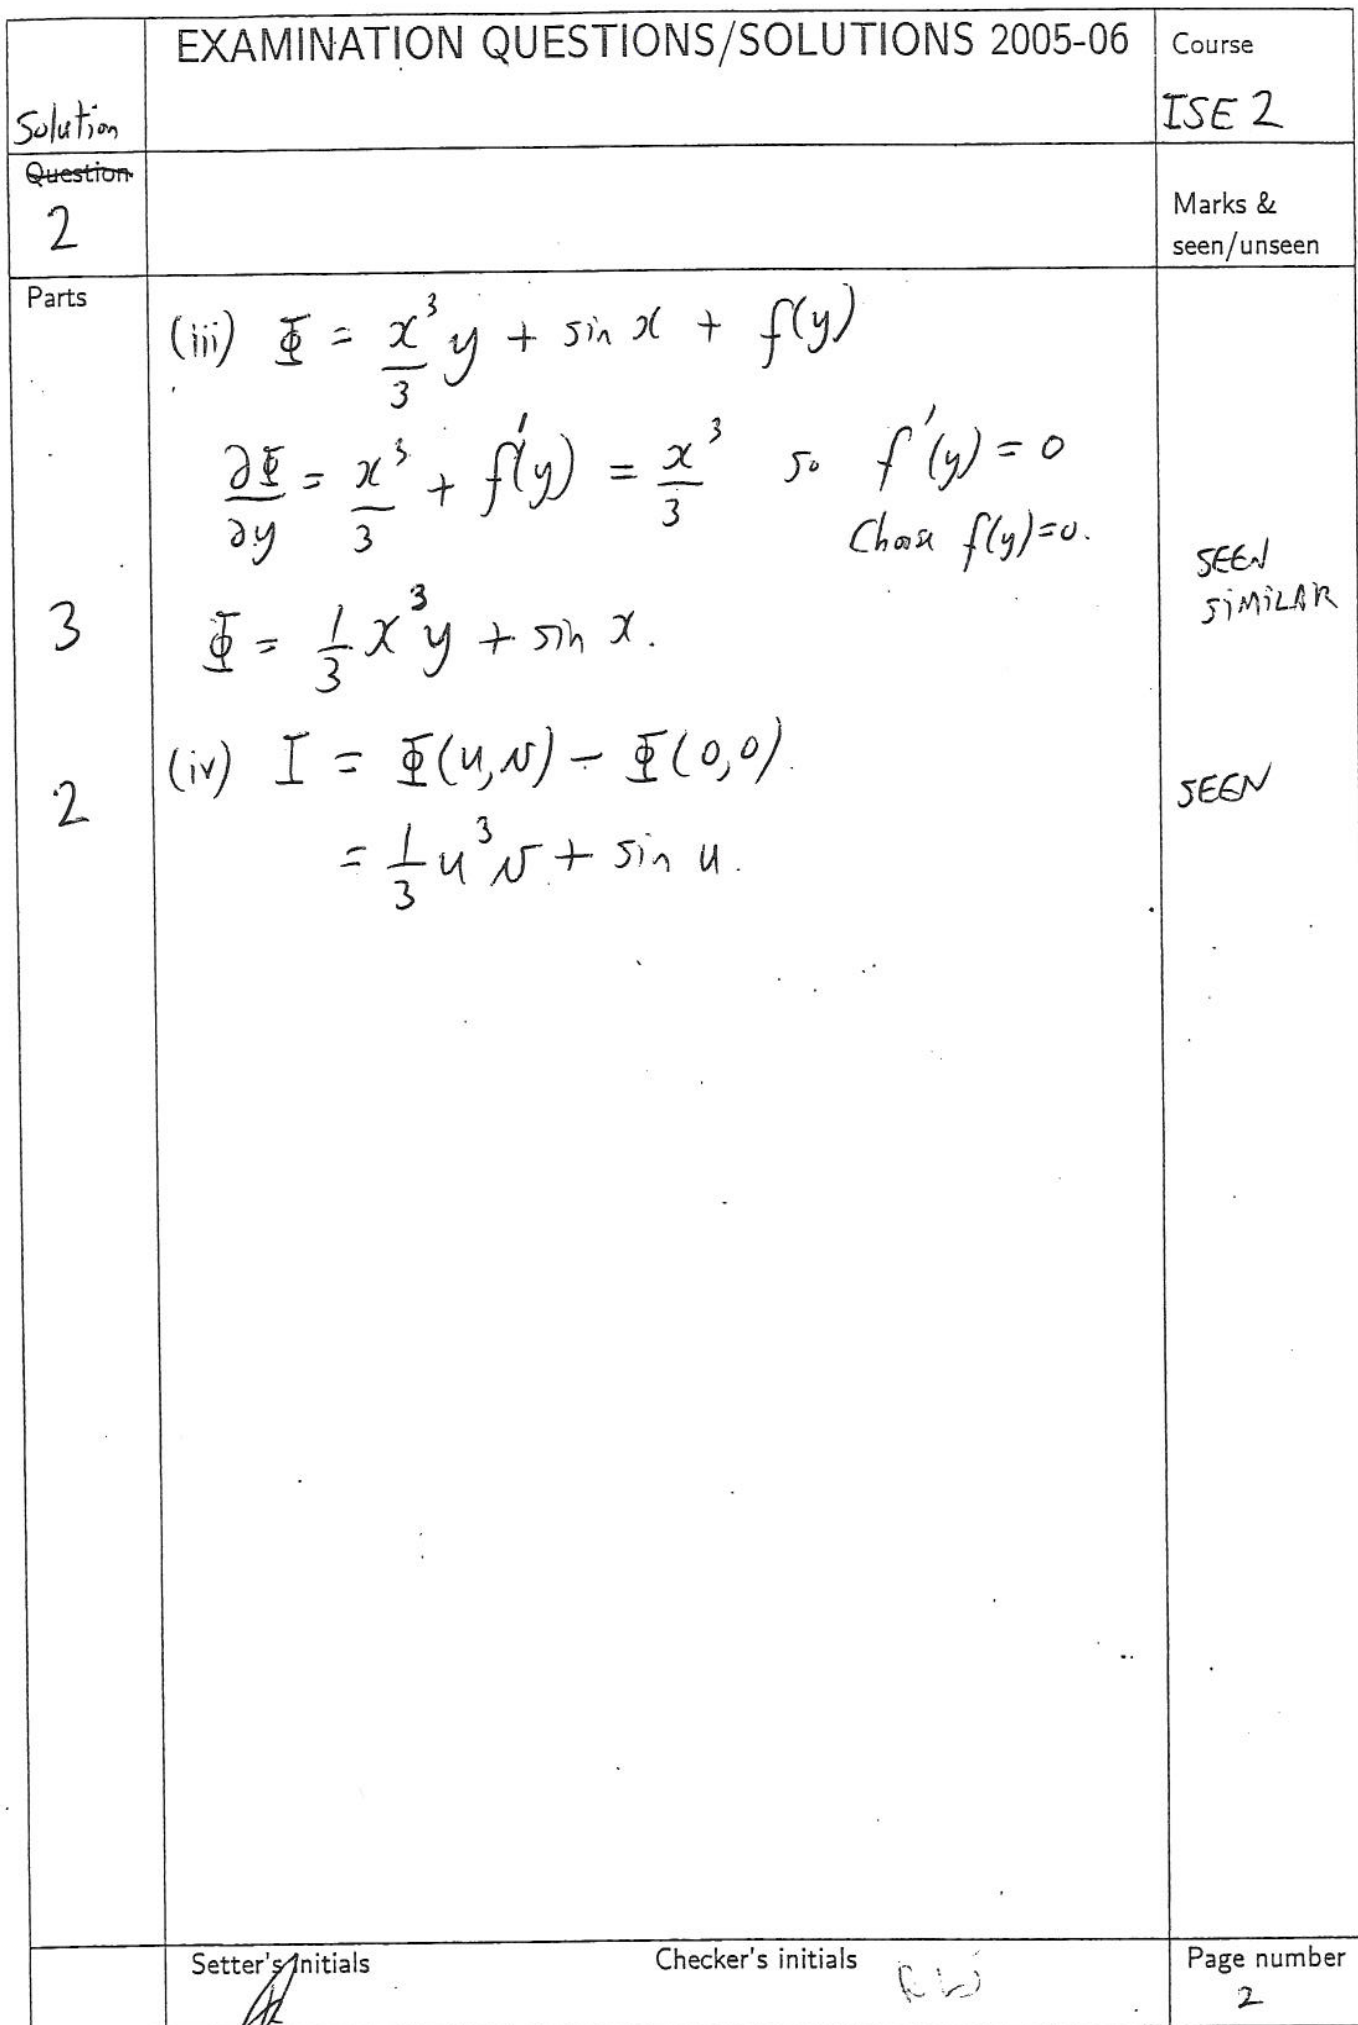 EXAMINATION QUESTIONS/SOLUTIONS 2005-06
Course
Solution
ISE 2
Question
2
Marks &
seen/unseen
Parts
(iii) Φ = x³/3 y + sin x + f(y)
∂Φ/∂y = x³/3 + f'(y) = x³/3 so f'(y) = 0
Choose f(y)=0.
SEEN
SIMILAR
3
Φ = 1/3 x³y + sin x.
(iv) I = Φ(u,v) - Φ(0,0).
2
SEEN
= 1/3 u³v + sin u.
Setter's initials
Checker's initials
Page number
2